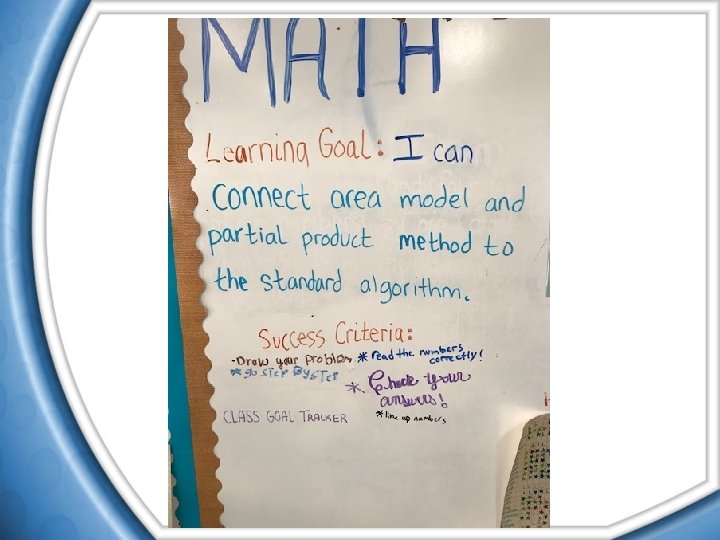 MATH
Learning Goal: I can
connect area model and
partial product method to
the standard algorithm.
Success Criteria:
-Draw your problem *read the numbers correctly!
*go STEP BY STEP
* Check your answers!
CLASS GOAL TRACKER
*line up numbers